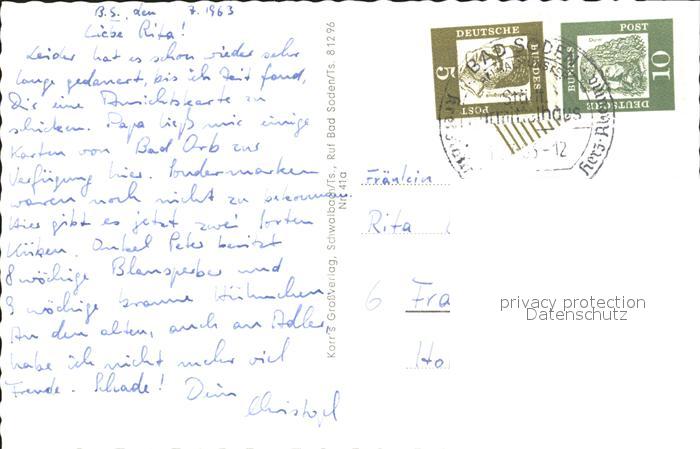 B.S., den 7. 1963
Liebe Rita!
Leider hat es schon wieder sehr
lange gedauert, bis ich Zeit fand,
Dir eine Ansichtskarte zu
schicken. Papa ließ mir einige
Karten von Bad Orb zur
Verfügung hier. Sondermarken
waren noch nicht zu bekommen.
Hier gibt es jetzt zwei Sorten
Küken. Onkel Peter besitzt
8 wöchige Blausperber und
3 wöchige braune Hühnchen.
An den alten, auch an Adler,
habe ich nicht mehr viel
Freude. Schade! Dein
Christoph
Karr's Großverlag, Schwalbach/Ts., Ruf Bad Soden/Ts. 81296
Nr. 41a
DEUTSCHE
BUNDES
POST
5
POST
DEUTSCHE
BUNDES
10
BAD SODEN
-12
Fräulein
Rita
6 Fra
Ho
privacy protection
Datenschutz